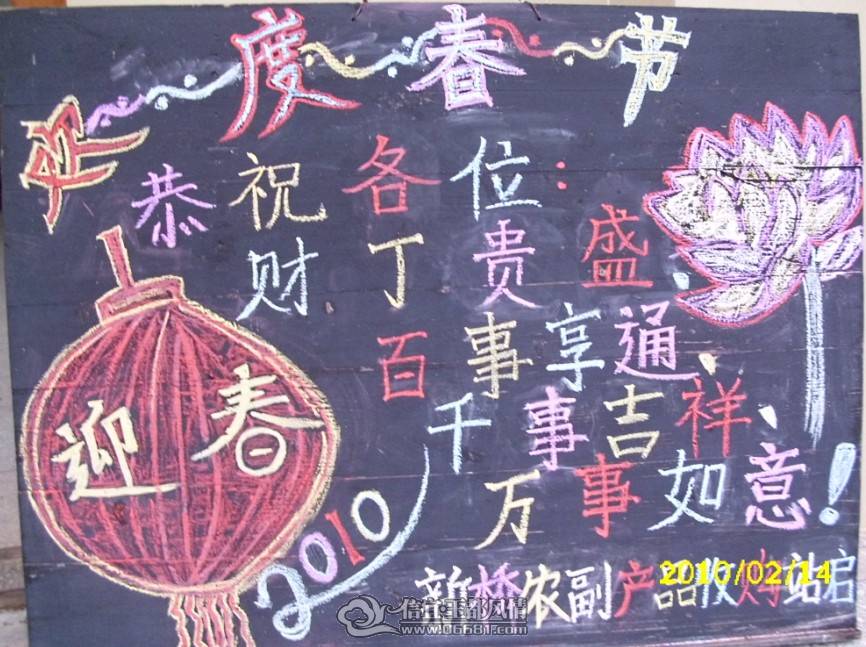 欢度春节
恭祝各位:
财丁贵盛、
百事享通、
千事吉祥、
万事如意!
迎春
2010
新桥农副产品收购站启
2010/02/14
信宜玉都风情
www.06681.com